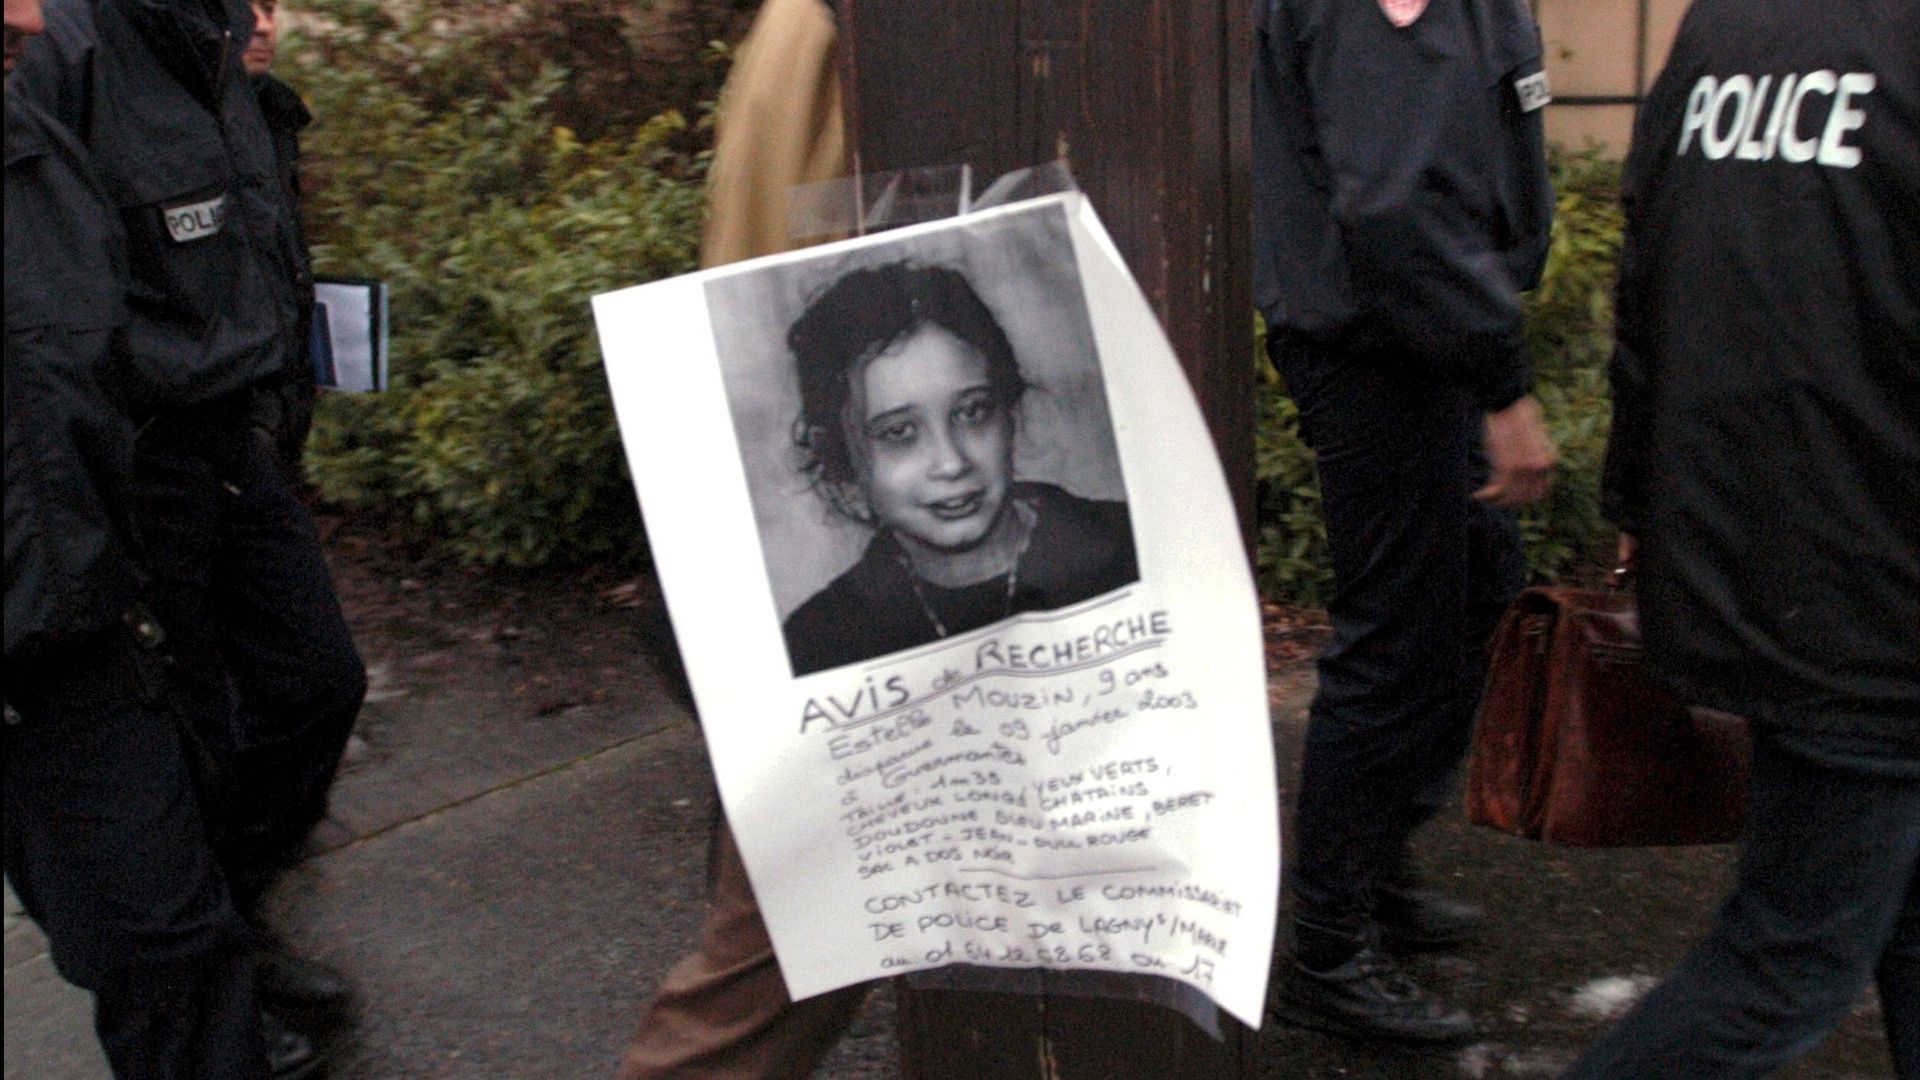 POLICE
AVIS de RECHERCHE
Estelle MOUZIN, 9 ans
disparue le 09 janvier 2003
à Guermantes
TAILLE : 1m35 YEUX VERTS,
CHEVEUX LONGS CHATAINS
DOUDOUNE BLEU MARINE, BERET
VIOLET - JEAN - PULL ROUGE
SAC A DOS NOIR
CONTACTEZ LE COMMISSARIAT
DE POLICE DE LAGNY S/MARNE
au 01 64 12 68 68 ou 17